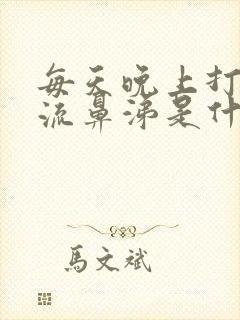 每天晚上打
流鼻涕是什
馬文斌